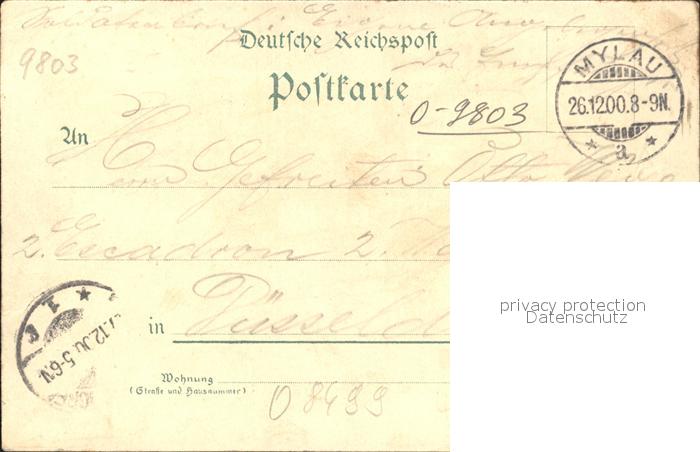 Soldatenbrief. Eigene Angelegenheit
Deutsche Reichspost
des Empf
9803
Postkarte
MYLAU
26.12.00.8-9N.
a
0-9803
An
Herrn Gefreiten Otto
2. Escadron 2.
privacy protection
Datenschutz
.12.00.5-6N.
in Düsseld
Wohnung
(Straße und Hausnummer)
0 8499